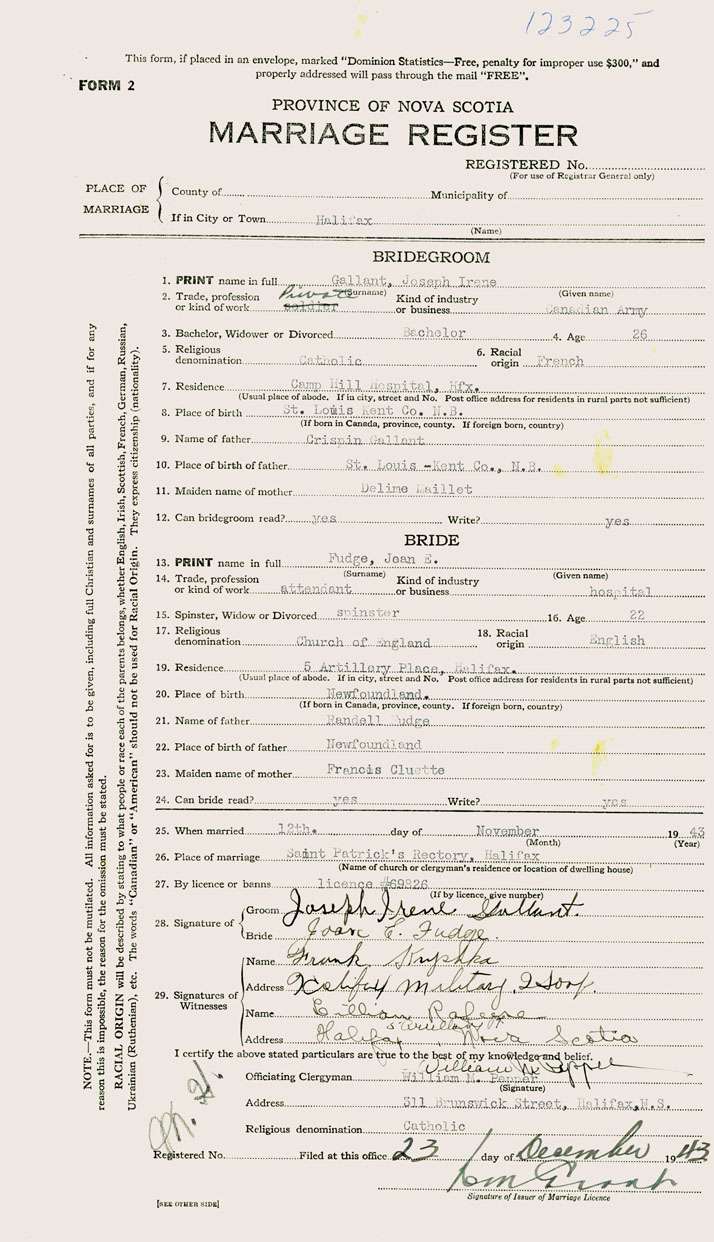 123225
This form, if placed in an envelope, marked "Dominion Statistics—Free, penalty for improper use $300," and
properly addressed will pass through the mail "FREE".
FORM 2
PROVINCE OF NOVA SCOTIA
MARRIAGE REGISTER
REGISTERED No.
(For use of Registrar General only)
PLACE OF MARRIAGE
County of Municipality of
If in City or Town Halifax
(Name)
BRIDEGROOM
1. PRINT name in full Gallant, Joseph Irene
(Surname) (Given name)
2. Trade, profession or kind of work Private soldier Kind of industry or business Canadian Army
3. Bachelor, Widower or Divorced Bachelor 4. Age 26
5. Religious denomination Catholic 6. Racial origin French
7. Residence Camp Hill Hospital, Hfx.
(Usual place of abode. If in city, street and No. Post office address for residents in rural parts not sufficient)
8. Place of birth St. Louis Kent Co. N.B.
(If born in Canada, province, county. If foreign born, country)
9. Name of father Crispin Gallant
10. Place of birth of father St. Louis -Kent Co., N.B.
11. Maiden name of mother Delime Maillet
12. Can bridegroom read? yes Write? yes
BRIDE
13. PRINT name in full Fudge, Joan E.
(Surname) (Given name)
14. Trade, profession or kind of work attendant Kind of industry or business hospital
15. Spinster, Widow or Divorced spinster 16. Age 22
17. Religious denomination Church of England 18. Racial origin English
19. Residence 5 Artillery Place, Halifax.
(Usual place of abode. If in city, street and No. Post office address for residents in rural parts not sufficient)
20. Place of birth Newfoundland.
(If born in Canada, province, county. If foreign born, country)
21. Name of father Randell Fudge
22. Place of birth of father Newfoundland
23. Maiden name of mother Francis Cluette
24. Can bride read? yes Write? yes
25. When married 12th. day of November 1943
(Month) (Year)
26. Place of marriage Saint Patrick's Rectory, Halifax
(Name of church or clergyman's residence or location of dwelling house)
27. By licence or banns licence #69826
(If by licence, give number)
28. Signature of
Groom Joseph Irene Gallant.
Bride Joan E. Fudge.
29. Signatures of Witnesses
Name Frank
Address Halifax Military
Name Lillian
Address Halifax Nova Scotia
I certify the above stated particulars are true to the best of my knowledge and belief.
William M. Pepper
Officiating Clergyman William M. Pepper
(Signature)
Address 311 Brunswick Street, Halifax, N.S.
Religious denomination Catholic
Registered No. Filed at this office 23 day of December 1943
Grant
Signature of Issuer of Marriage Licence
[SEE OTHER SIDE]
NOTE.—This form must not be mutilated. All information asked for is to be given, including full Christian and surnames of all parties, and if for any
reason this is impossible, the reason for the omission must be stated.
RACIAL ORIGIN will be described by stating to what people or race each of the parents belongs, whether English, Irish, Scottish, French, German, Russian,
Ukrainian (Ruthenian), etc. The words "Canadian" or "American" should not be used for Racial Origin. They express citizenship (nationality).